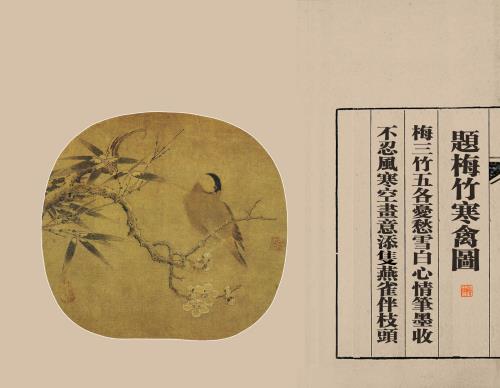 題梅竹寒禽圖
梅三竹五各憂愁雪白心情筆墨收
不忍風寒空畫意添隻燕雀伴枝頭